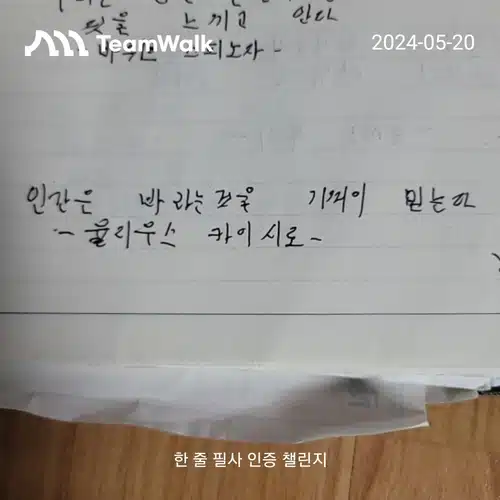 것을 느끼고 있다
TeamWalk
2024-05-20
- 바루흐 스피노자 -
인간은 바라는것을 기꺼이 믿는다
- 율리우스 카이사르 -
한 줄 필사 인증 챌린지